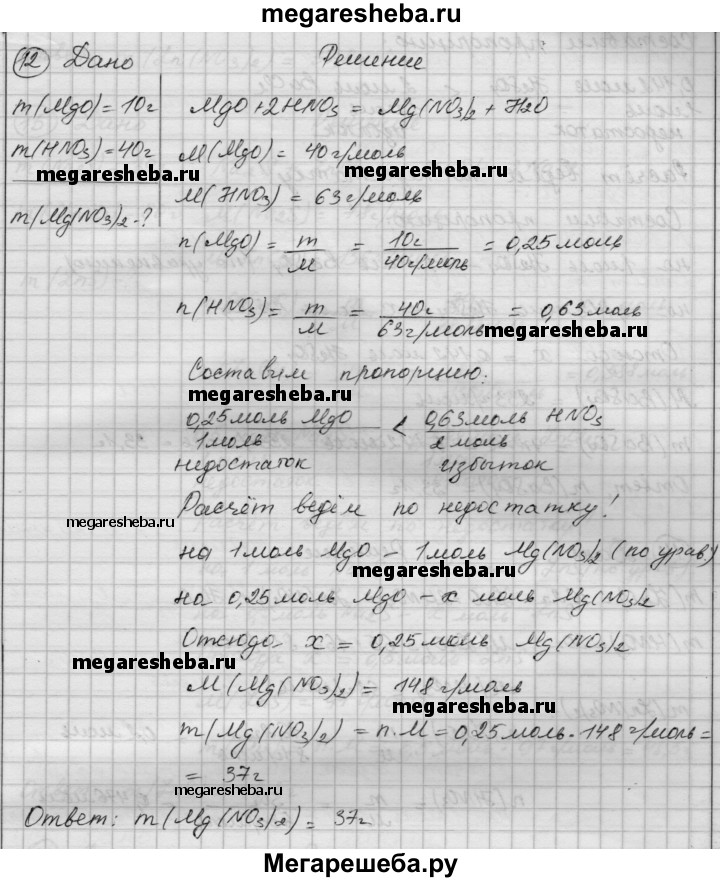 megaresheba.ru
12 Дано Решение
m(MgO) = 10г
MgO + 2HNO3 = Mg(NO3)2 + H2O
m(HNO3) = 40г
M(MgO) = 40 г/моль
megaresheba.ru megaresheba.ru
M(HNO3) = 63 г/моль
m(Mg(NO3)2 - ?
n(MgO) = m/M = 10г/40г/моль = 0,25 моль
n(HNO3) = m/M = 40г/63 г/моль = 0,63 моль
megaresheba.ru
Составим пропорцию:
megaresheba.ru
0,25 моль MgO / 1 моль < 0,63 моль HNO3 / 2 моль
megaresheba.ru
недостаток избыток
Расчёт ведём по недостатку!
megaresheba.ru
на 1 моль MgO – 1 моль Mg(NO3)2 (по урав)
megaresheba.ru
на 0,25 моль MgO – x моль Mg(NO3)2
Отсюдо x = 0,25 моль Mg(NO3)2
megaresheba.ru
M(Mg(NO3)2) = 148 г/моль
megaresheba.ru
m(Mg(NO3)2) = n·M = 0,25 моль · 148 г/моль =
= 37г
megaresheba.ru
Ответ: m(Mg(NO3)2) = 37г
megaresheba.ru
Мегарешеба.ру